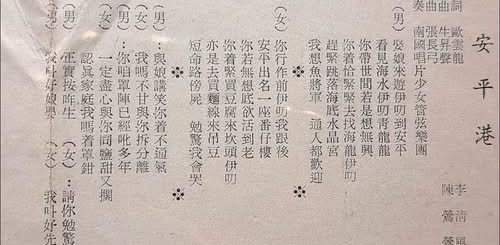 安平港
李清
陳鶯
詞 歐雲龍
曲 昇聲
曲 張長弓
奏 南國唱片少女管弦樂團
(男) 娶娘來遊伊叨到安平
看見海水伊叨青龍龍
你帶世間若是想無興
你着恰緊緊去找海龍伊叨
趕緊跳落海底水晶宮
我想魚將軍 通人都歡迎
※ ※ ※
(女) 你行作前伊叨我跟後
安平出名一座番仔樓
你若無想底欲活到老
你着緊緊買豆腐來坎頭伊叨
亦是去買麵線來吊豆
短命路傍屍 勉驚我會哭
※ ※ ※
(男)：與娘講笑你着不通氣
(女)：我嗎不甘與你拆分離
(男)：你咱罩陣已經吪多年
(女)：一定盡心與你同鹽甜又摑
(男)：認真家庭我嗎着罩鉗
正實按咋生 (女)：請你勉驚
(男)：我叫好娘嬰 (女)：我叫好先